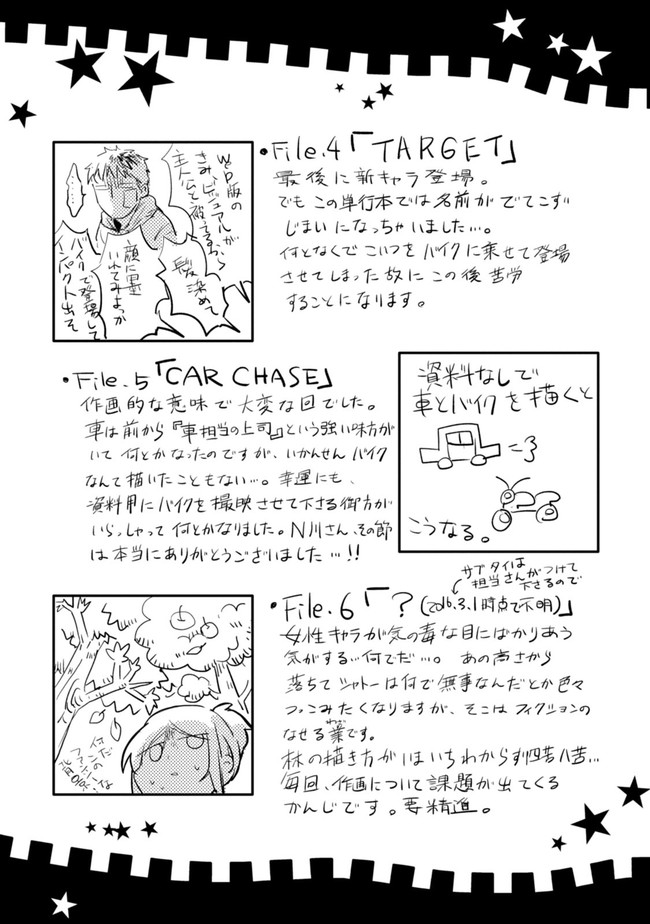 ・File.4「TARGET」
最後に新キャラ登場。
でもこの単行本では名前がでてこず
じまいになっちゃいました…。
何となくでこいつをバイクに乗せて登場
させてしまった故にこの後苦労
することになります。
Web版の
きみ、ビジュアルが
主人公と被ってるから
髪染めて
顔に墨
いれてみよっか
バイクで登場して
インパクト出そ
……
・File.5「CAR CHASE」
作画的な意味で大変な回でした。
車は前から『車担当の上司』という強い味方が
いて何とかなったのですが、いかんせんバイク
なんて描いたこともない…。幸運にも、
資料用にバイクを撮映させて下さる御方が
いらっしゃって何とかなりました。N川さん、その節
は本当にありがとうございました…!!
資料なしで
車とバイクを描くと
こうなる。
・File.6「?(2016.3.1時点で不明)」
サブタイは
担当さんがつけて
下さるので
女性キャラが気の毒な目にばかりあう
気がする…何でだ…。あの高さから
落ちてシャトーは何で無事なんだとか色々
つっこみたくなりますが、そこはフィクションの
なせる業です。
わざ
林の描き方がいまいちわからず四苦八苦…
毎回、作画について課題が出てくる
かんじです。要精進。
何だ
この
ファンシーな